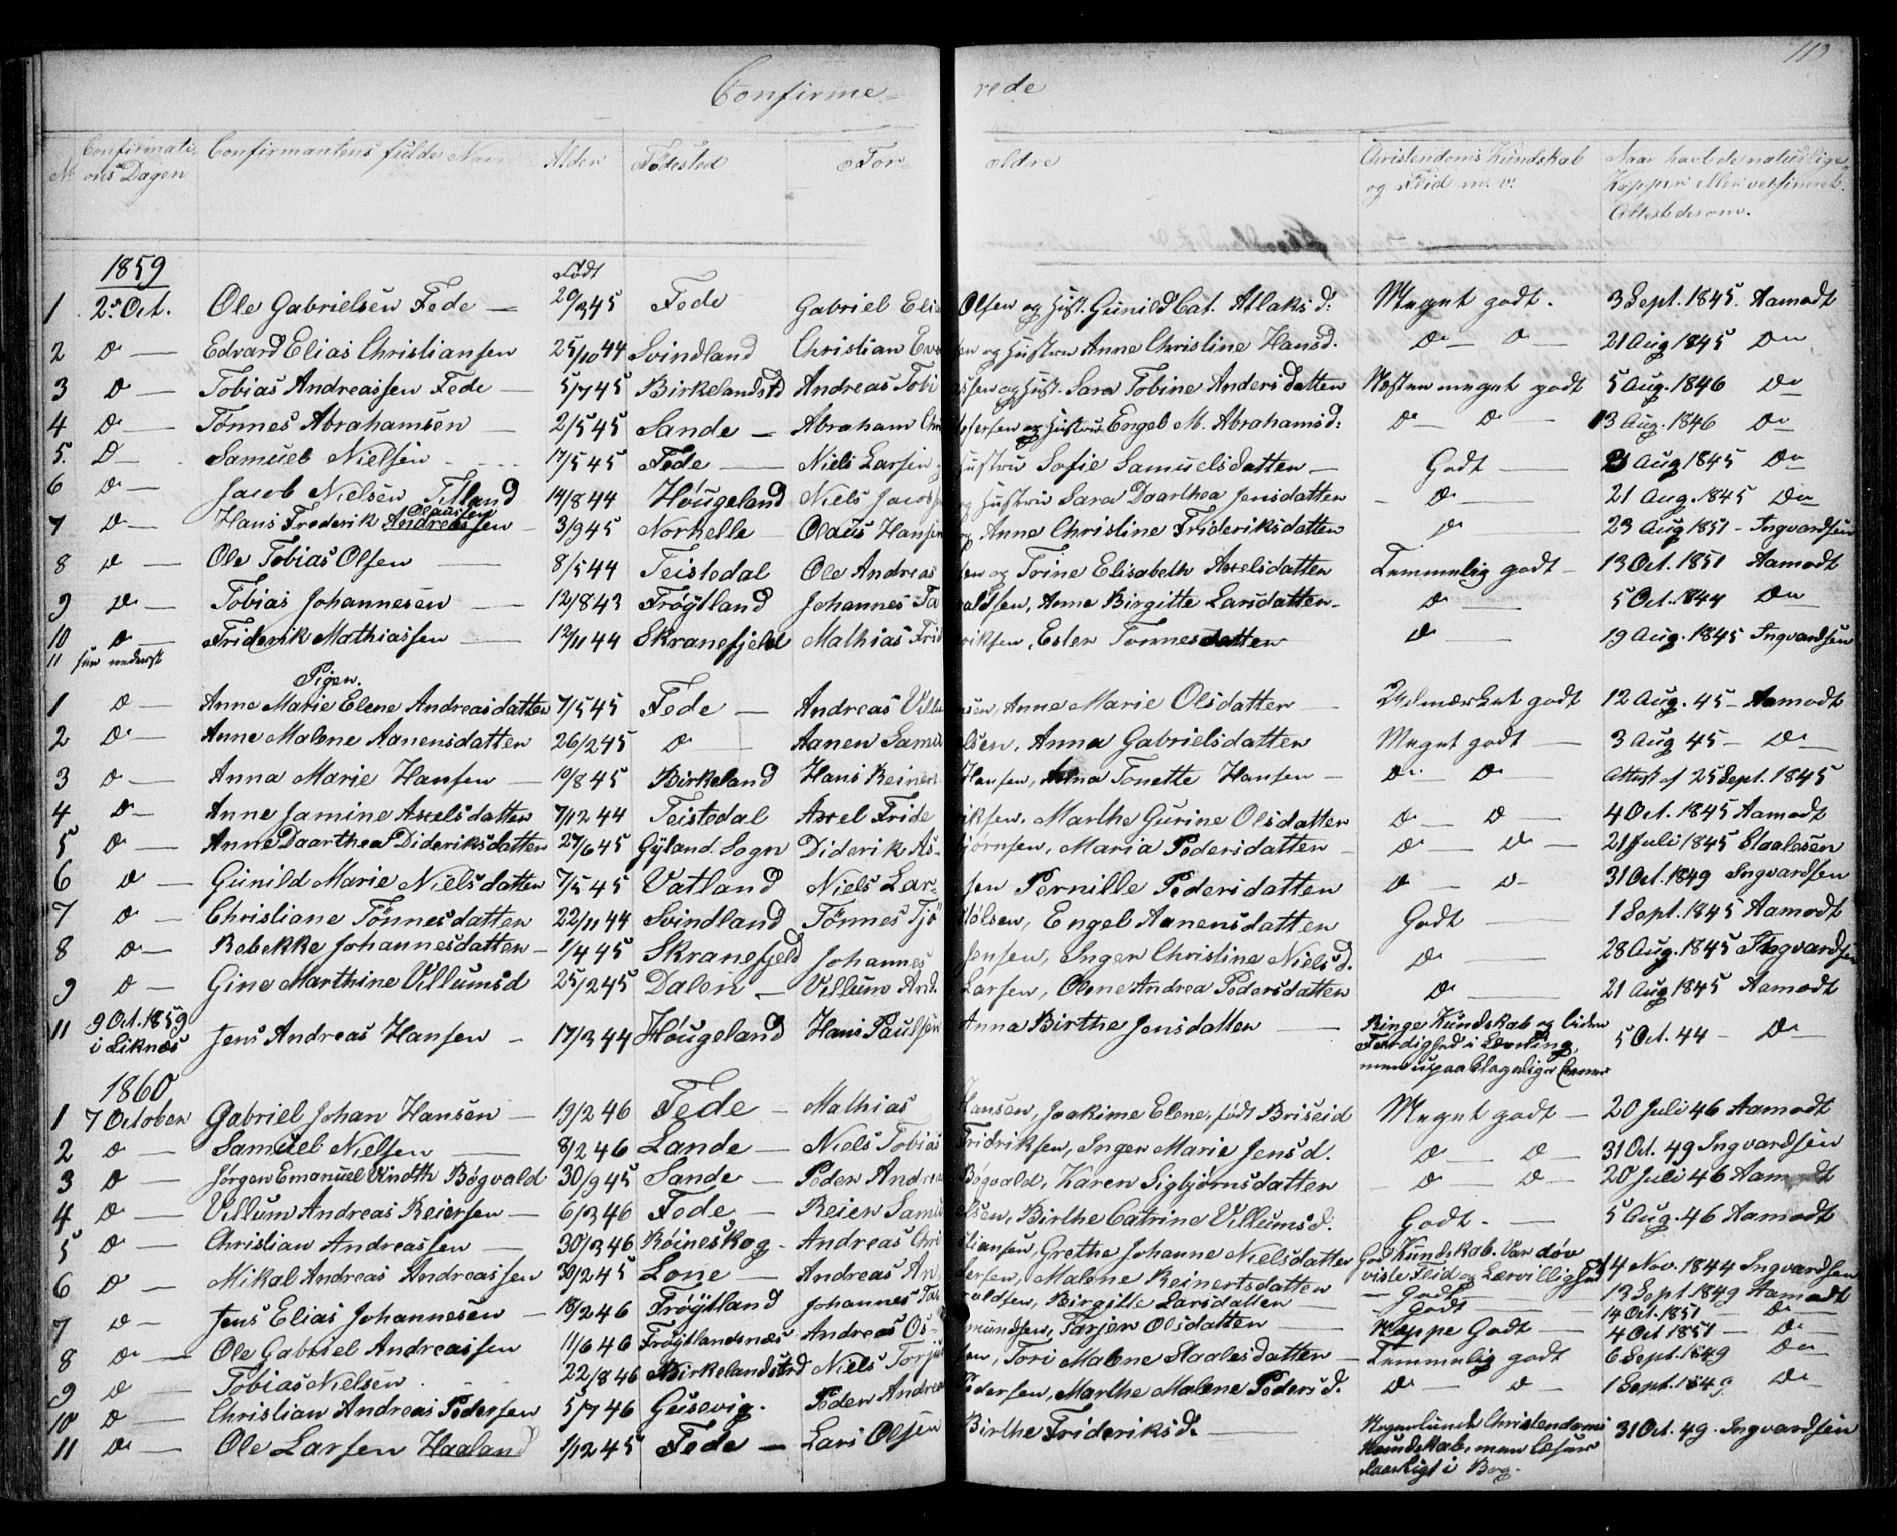 113
Confirme- rede
No Confirmati- ons Dagen Confirmantens fulde Navn Alder Fødested For- ældre Christendoms Kundskab og Flid m. v. Naar havt de naturlige Kopper eller vaksineret. Attest derom.
1859 Født
1 2n Oct. Ole Gabrielsen Fede — 20/3 45 Fede Gabriel Elias Olsen og Hust. Gunild Cat. Atlaksd: Meget godt. 3 Sept. 1845. Aamodt
2 D — Edvard Elias Christiansen 25/10 44 Svindland Christian Ev sen og Hustru Anne Christine Hansd. D — D — 21 Aug 1845 Do
3 D — Tobias Andreassen Fede — 5/7 45 Birkelandstd Andreas Tobi assen og Hust. Sara Tobine Andersdatten Næsten meget godt 5 Aug. 1846 Do
4 D — Tønnes Abrahamsen — 2/5 45 Sande — Abraham Chri stofersen og Hustru Engel M. Abrahamsd: D — D — 13 Aug. 1846 Do
5. D — Samuel Nielsen 17/5 45 Fede — Niels Larsen og Hustru Sofie Samuelsdatten — Godt — 3 Aug 1845 Do
6 D — Jacob Nielsen Titland 14/8 44 Høugeland Niels Jacobsen og Hustru Sara Daarthea Jensdatten — D — 21 Aug. 1845 Do
7 D — Hans Frederik Andreassen Olaussen — 3/9 45 Norkelle — Olaus Hansen og Anne Christine Frideriksdatten D — 23 Aug 1851 - Ingvardsen
8 D — Ole Tobias Olsen — 8/5 44 Teistedal Ole Andreas sen og Trine Elisabeth Axelsdatten Temmelig godt — 13 Oct. 1851 Aamodt
9 D — Tobias Johannesen — 12/8 43 Frøÿtland Johannes Ta raldsen, Anne Birgitte Larsdatten — D — 5 Oct. 1844 Do
10 D — Friderik Mathiassen — 12/11 44 Skranefjeld Mathias Frid eriksen, Ester Tonnesdatten D — 19 Aug. 1845 Ingvardsen
11 see nederst
Pigen.
1 D — Anne Marie Elene Andreasdatten 7/5 45 Fede — Andreas Villu msen, Anne Marie Olsdatten — Udmærket godt 12 Aug. 45 - Aamodt
2 D — Anne Malene Aanensdatten 26/2 45 D — Aanen Samu elsen, Anna Gabrielsdatten Meget godt — 3 Aug 45 — D —
3 D — Anna Marie Hansen — 10/8 45 Birkeland Hans Reinert Hansen, Anna Tonette Hansen — D — D — Attest af 25 Sept. 1845
4 D — Anne Jamine Axelsdatten 7/12 44 Teistedal Axel Fride riksen. Marthe Gurine Olsdatter D — D — 4 Oct. 1845 Aamodt
5 D — Anne Daarthea Dideriksdatten 27/6 45 Gÿland Sogn Diderik As- bjørnsen, Maria Pedersdatten — D — D — 21 Juli 1845 Staalesen
6 D — Gunild Marie Nielsdatten 7/5 45 Vatland Niels Lar- sen Pernille Pedersdatten D — D — 31 Oct. 1849 Ingvardsen
7 D — Christiane Tønnesdatten 22/11 44 Svindland Tønnes Tjø stolsen, Engel Aanensdatten Godt — 1 Sept. 1845 Aamodt
8 D — Rebekke Johannesdatten — 1/4 45 Skranefjeld Johannes Jensen, Inger Christine Nielsd. D — 28 Aug. 1845 Ingvardsen
9 D — Gine Marthine Villumsd 25/2 45 Dalen — Villum And. Larsen, Olene Andrea Pedersdatten D — 21 Aug 1845 Aamodt
11 9 Oct. 1859 i Liknæs Jens Andreas Hansen — 17/3 44 Høugeland Hans Paulsen Anna Birthe Jensdatten — Ringe Kundskab og liden Færdighed i Læsning, men upaaklageliger Evner 5 Oct. 44 — D —
1860
1 7 October Gabriel Johan Hansen — 19/2 46 Fede — Mathias Hansen, Joakime Elene, født Briseid Meget godt — 20 Juli 46 Aamodt
2 D — Samuel Nielsen — 8/2 46 Lande — Niels Tobias Fridriksen, Inger Marie Jensd. D — D — 31 Oct. 49 Ingvardsen
3 D — Jørgen Emanuel Bøgvald 30/9 45 Sande — Peder Andrea Bøgvald, Karen Sigbjørnsdatten — D — D — 20 Juli 46 Aamodt
4 D — Villum Andreas Reiersen — 6/3 46 Fede — Reier Samu elsen, Birthe Catrine Villumsd. Godt. — 5 Aug. 46 Aamodt
5 D — Christian Andreassen — 30/3 46 Røineskog — Andreas Chri stiansen, Grethe Johanne Nielsdatten God Kundskab. Var døv viste Flid og Lærvillighed 14 Nov. 1844 Ingvardsen
6 D — Mikal Andreas Andreassen 30/2 45 Lone — Andreas An dersen, Malene Reinertsdatten — Godt — 13 Sept 1849 Aamodt
7 D — Jens Elias Johannesen — 18/2 46 Frøÿtland Johannes Ta raldsen, Birgitte Larsdatten — Godt — 14 Oct. 1851 — D —
8 D — Ole Gabriel Andreassen 11/6 46 Frøÿtlandsnæs Andreas Os- mundsen, Tarjer Olsdatten — Neppe Godt — 4 Oct 1851 — D —
9 D — Tobias Nielsen 22/8 46 Birkelandstrd Niels Torju sen, Tori Malene Staalesdatten — Temmelig godt 6 Sept. 1849 Do
10 D — Christian Andreas Pedersen 5/7 46 Gusevig. Peder Andrea Pedersen, Marthe Malene Pedersd. D — D — 1 Sept. 1849 D —
11 D — Ole Larsen Haaland 1/12 45 Fede — Lars Olsen Birthe Frideriksd. — Nogenlunde Christendoms Kundskab, men læser daarligt i Bog. 31 Oct. 49. Ingvardsen